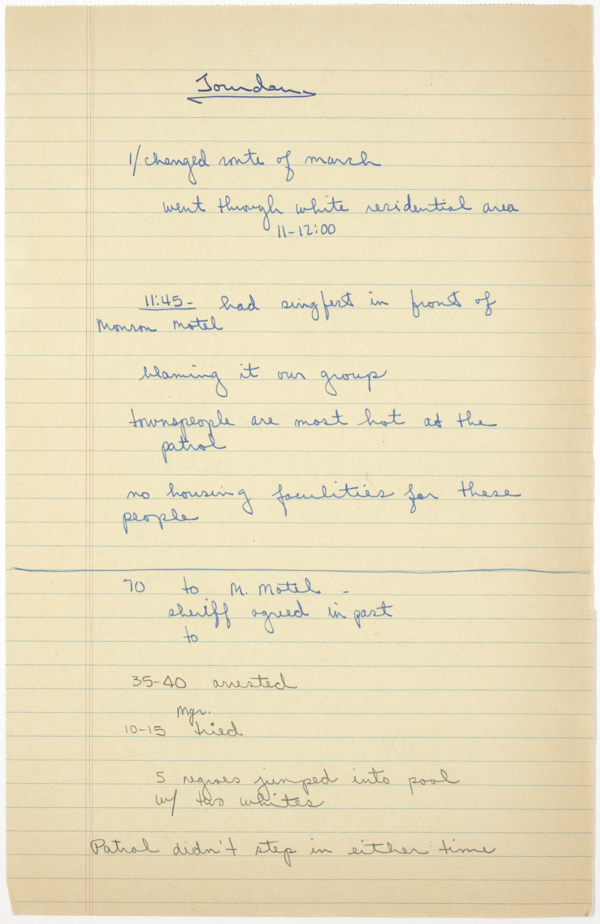 Jourdan
1/ changed route of march
went through white residential area
11-12:00
11:45 - had singfest in front of
Monson Motel
blaming it our group
townspeople are most hot at the
patrol
no housing faculities for these
people
70 to M. Motel -
sheriff agreed in part
to
35-40 arrested
Mgr.
10-15 tried
5 negroes jumped into pool
w/ two whites
Patrol didn't step in either time